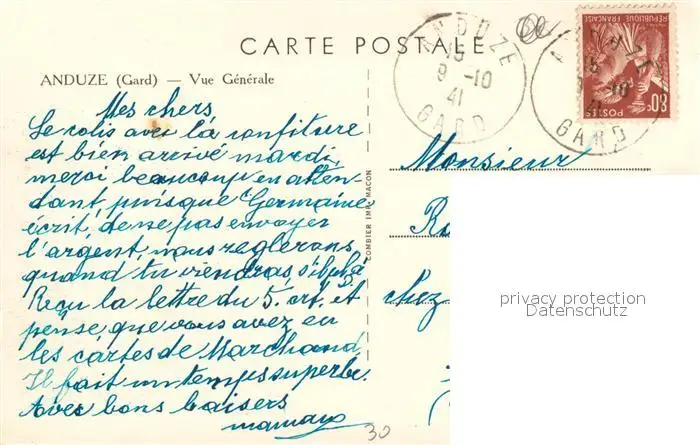 CARTE POSTALE
ANDUZE (Gard) — Vue Générale
ANDUZE
15
9 -10
41
GARD
ANDUZE
15
9 -10
41
GARD
RÉPUBLIQUE FRANÇAISE
POSTES
80c
Mes chers
Le colis avec la confiture
est bien arrivé mardi,
merci beaucoup en atten-
dant, puisque Germaine
écrit, de ne pas envoyer
l'argent, nous reglerons
quand tu viendras, s'il
Reçu la lettre du 5. crt. et
pense que vous avez eu
les cartes de Marchand.
Il fait un temps superbe.
Avec bons baisers
maman
30
COMBIER IMP. MACON
Monsieur
chez
privacy protection
Datenschutz